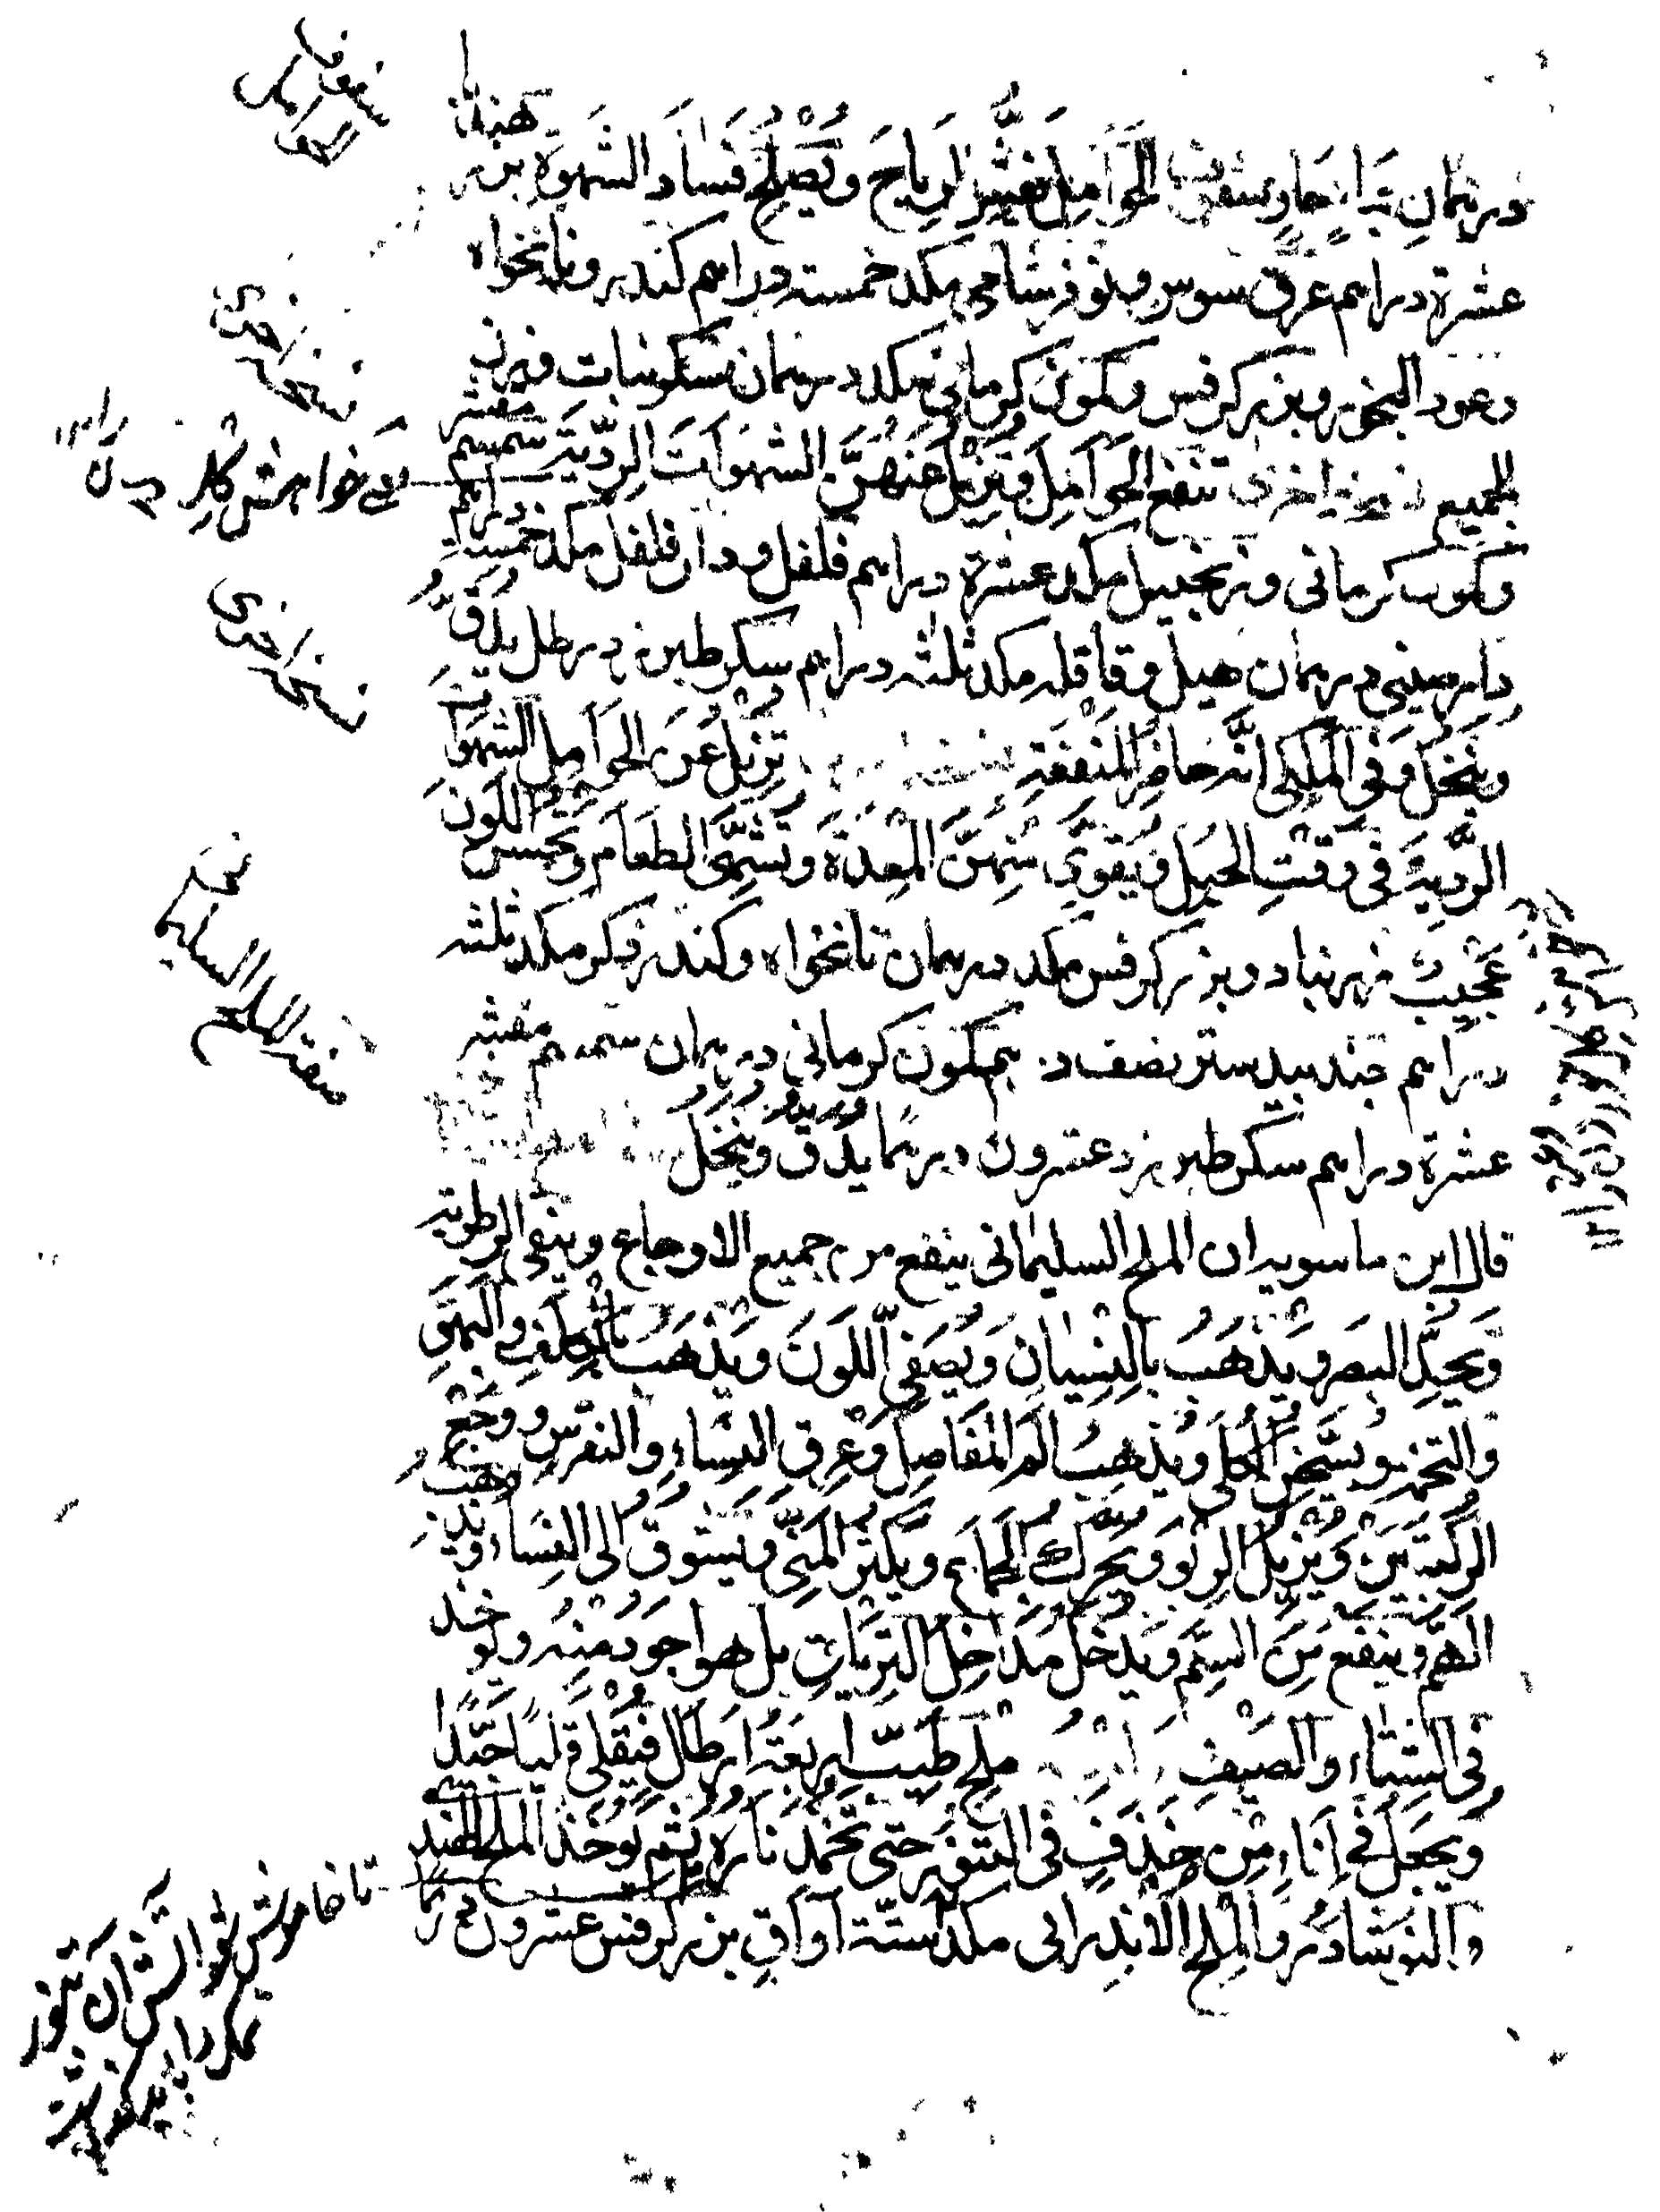 درهمان بماء حار سفوف الحوامل يفش الرياح ويصلح فساد الشهوة بزر
عشرة دراهم عرق سوس ونوفر شامي مكد خمسة دراهم كندر ونانخواه
وعود البخور وبزر كرفس وكمون كرماني مكد درهمان سكر نبات وزنه
الجميع نسخة اخرى تنفع الحوامل وتزيل عنهن الشهوات الردية سمسم مقشر
وكمون كرماني وزنجبيل مكد عشرة دراهم فلفل ودار فلفل مكد خمسة دراهم
دارصيني درهمان هيل وقاقله مكد ثلثة دراهم سكر طبرزد رطل يدق
وينخل وفي الملكي انه حاضر المنفعة تزيل عن الحوامل الشهوات
الردية في وقت الحبل ويقوي منهن المعدة وتشهي الطعام وتحسن اللون
عجيب زرنباد وبزر كرفس مكد درهمان نانخواه وكندر ذكر مكد ثلثه
دراهم جندبيدستر نصف درهم كمون كرماني درهمان سمسم مقشر
عشرة دراهم سكر طبرزد عشرون درهما يدق وينخل
قال ابن ماسويه ان الملح السليماني ينفع من جميع الاوجاع وينقي الرطوبة
ويحد البصر ويذهب بالنسيان ويصفي اللون ويذهب بالكلف والبهق
والتخمة ويسخن الكلى ويذهب الم المفاصل وعرق النساء والنقرس ووجع
الركبتين ويزيل الربو ويحرك الجماع ويكثر المني ويشوق الى النساء ويذهب
الهم وينفع من السم ويدخل مداخل الترياق بل هو اجود منه ويوخذ
في الشتاء والصيف ملح طيب اربعة ارطال فيقلى قليا جيدا
ويجعل في اناء من خذف في التنور حتى تخمد ناره ثم يوخذ الملح الهندي
والنوشادر والملح الاندراني مكد ستة آواق بزر كرفس عشرون درهما
نسخه اخرى
يعني خواهش كل
نسخه اخرى
منفعة الملح السليماني
تا خاموش شود آتش آن تنور